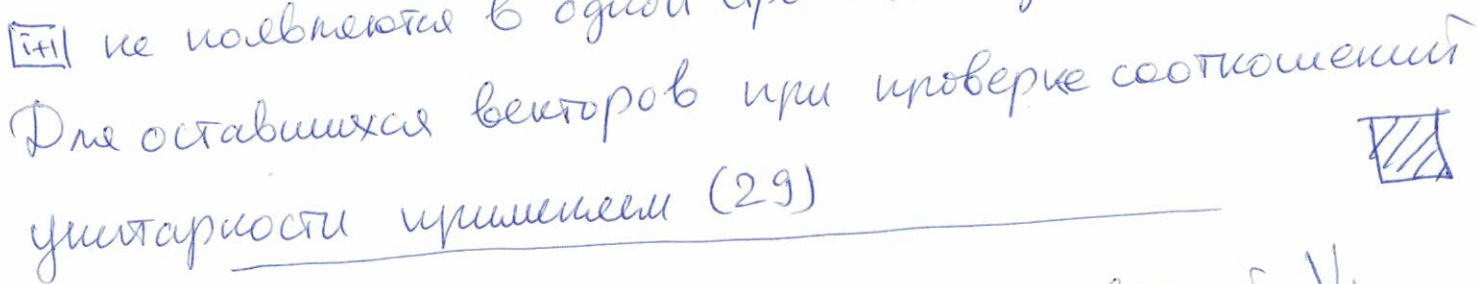 [i+1] не появляются в одной
Для оставшихся векторов при проверке соотношений
унитарности применяем (29)